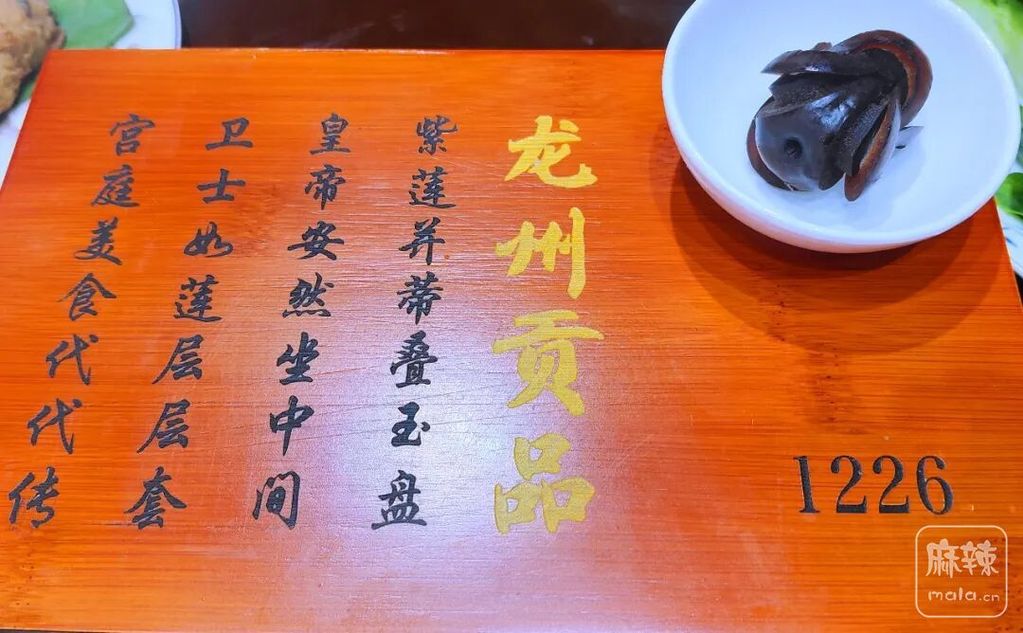 龙州贡品
紫莲并蒂叠玉盘
皇帝安然坐中间
卫士如莲层层套
宫庭美食代代传
1226
麻辣
mala.cn